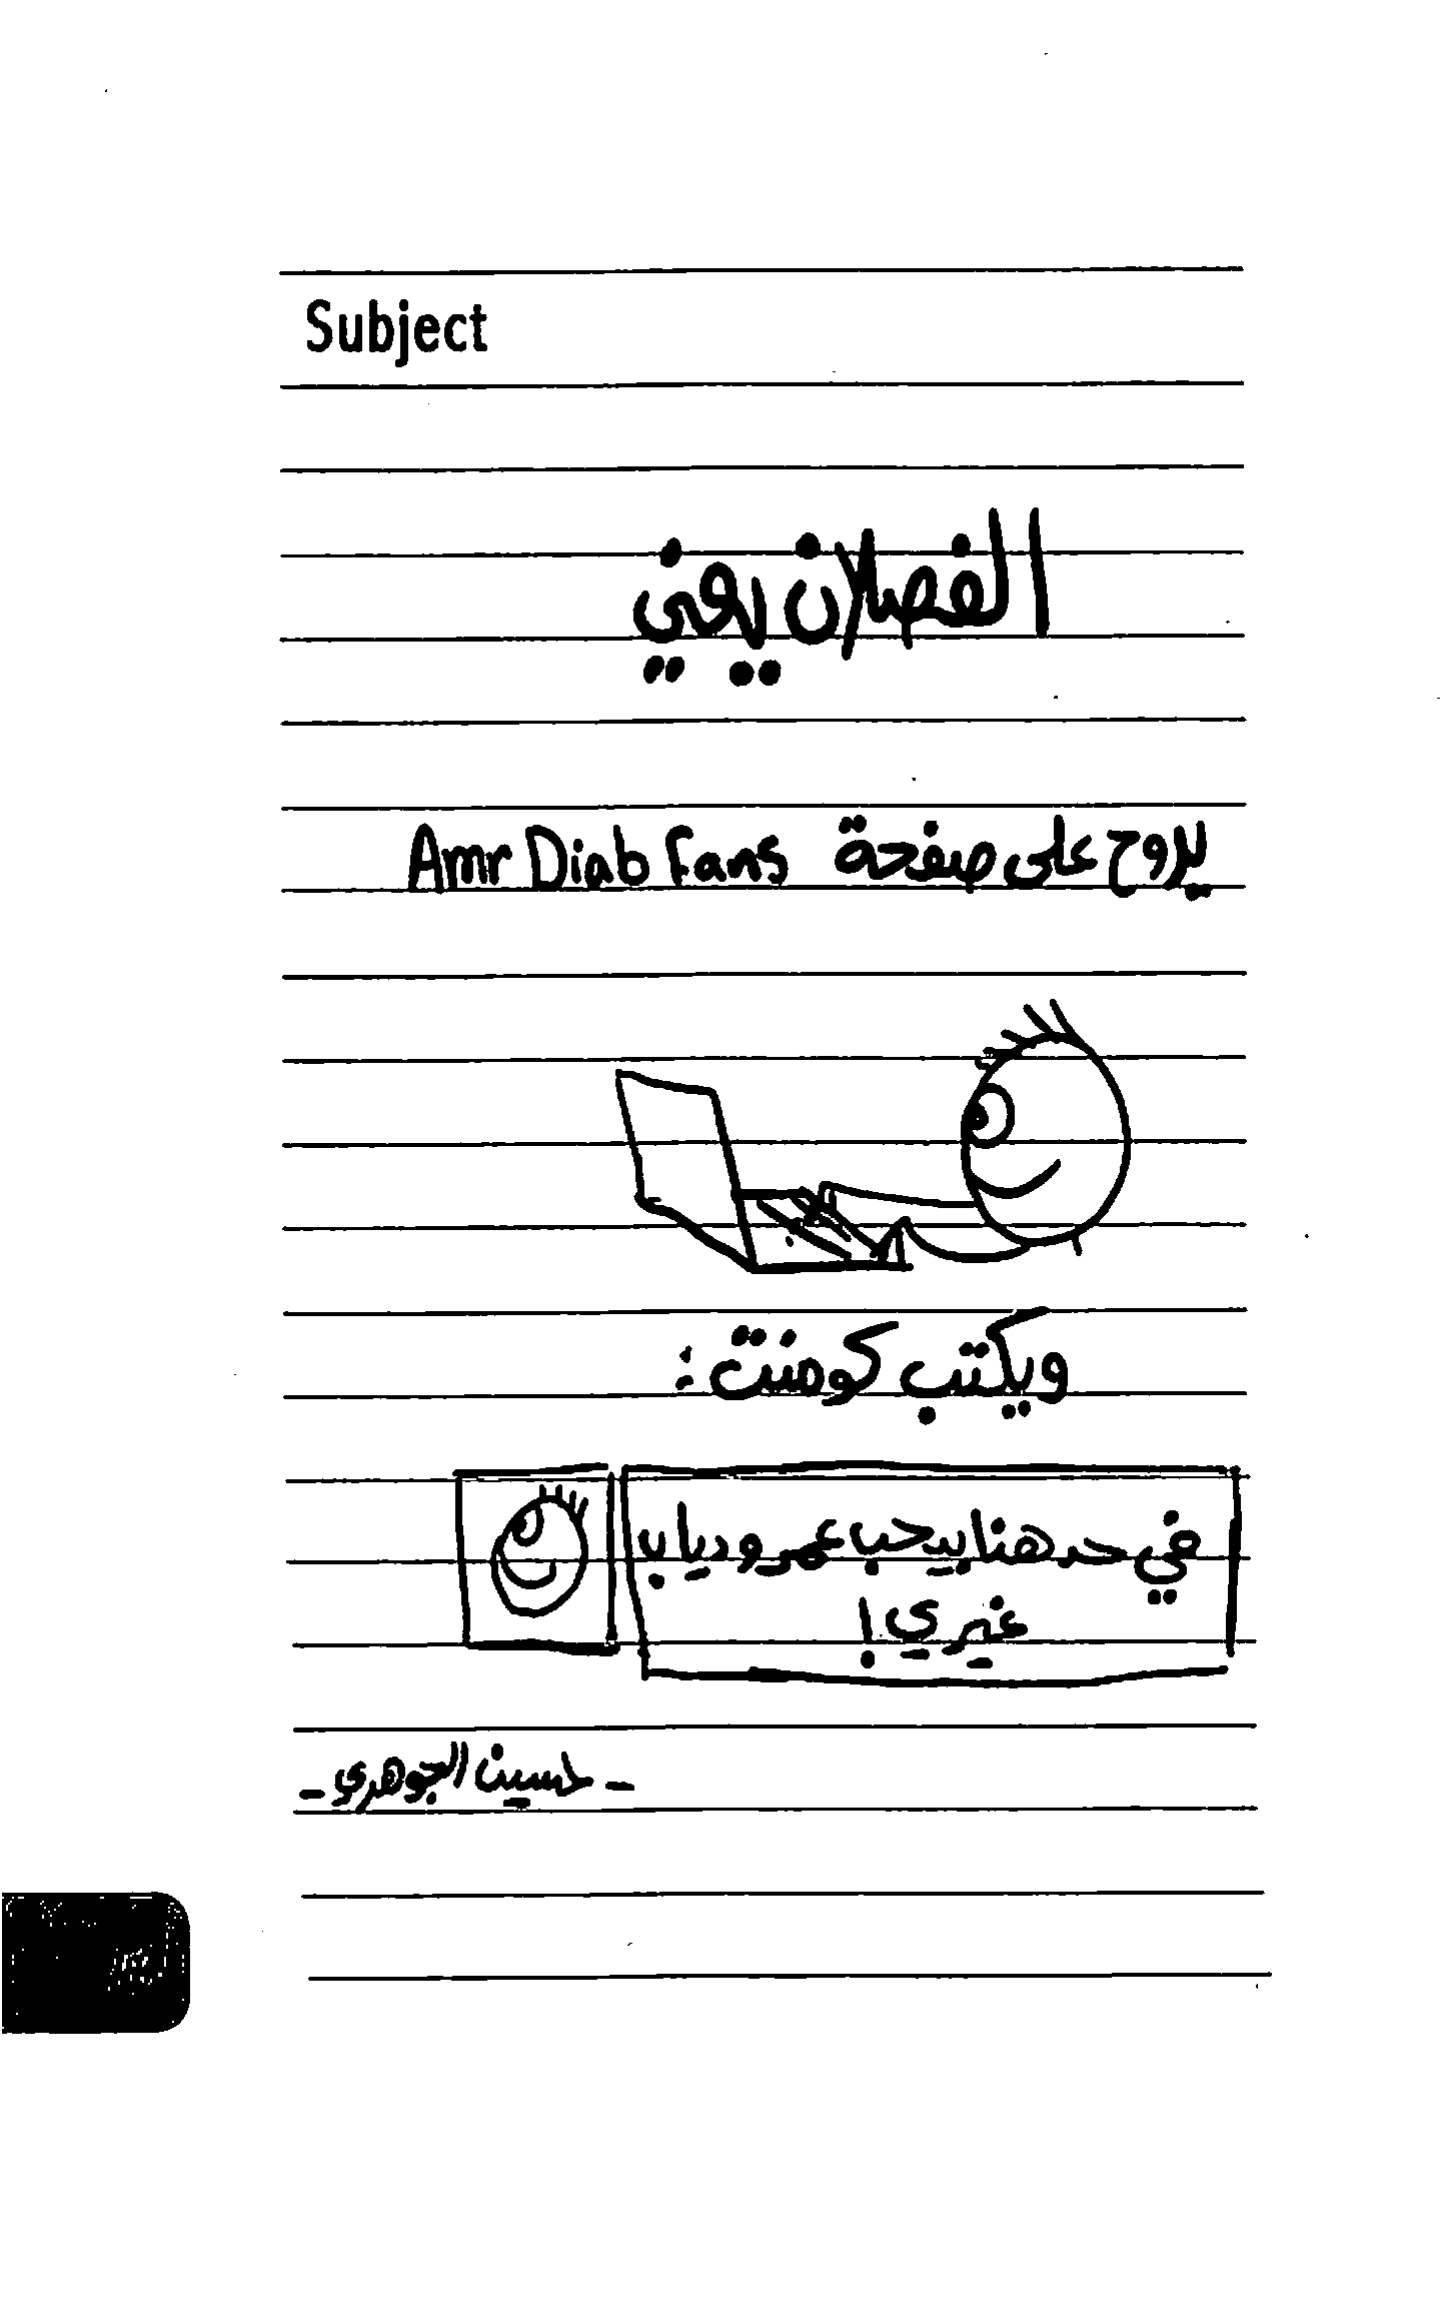 Subject
الفصلان يعني
يروح على صفحة Amr Diab Fans
ويكتب كومنت :
في حد هنا بيحب عمرو دياب
غيري !
- حسين الجوهري -